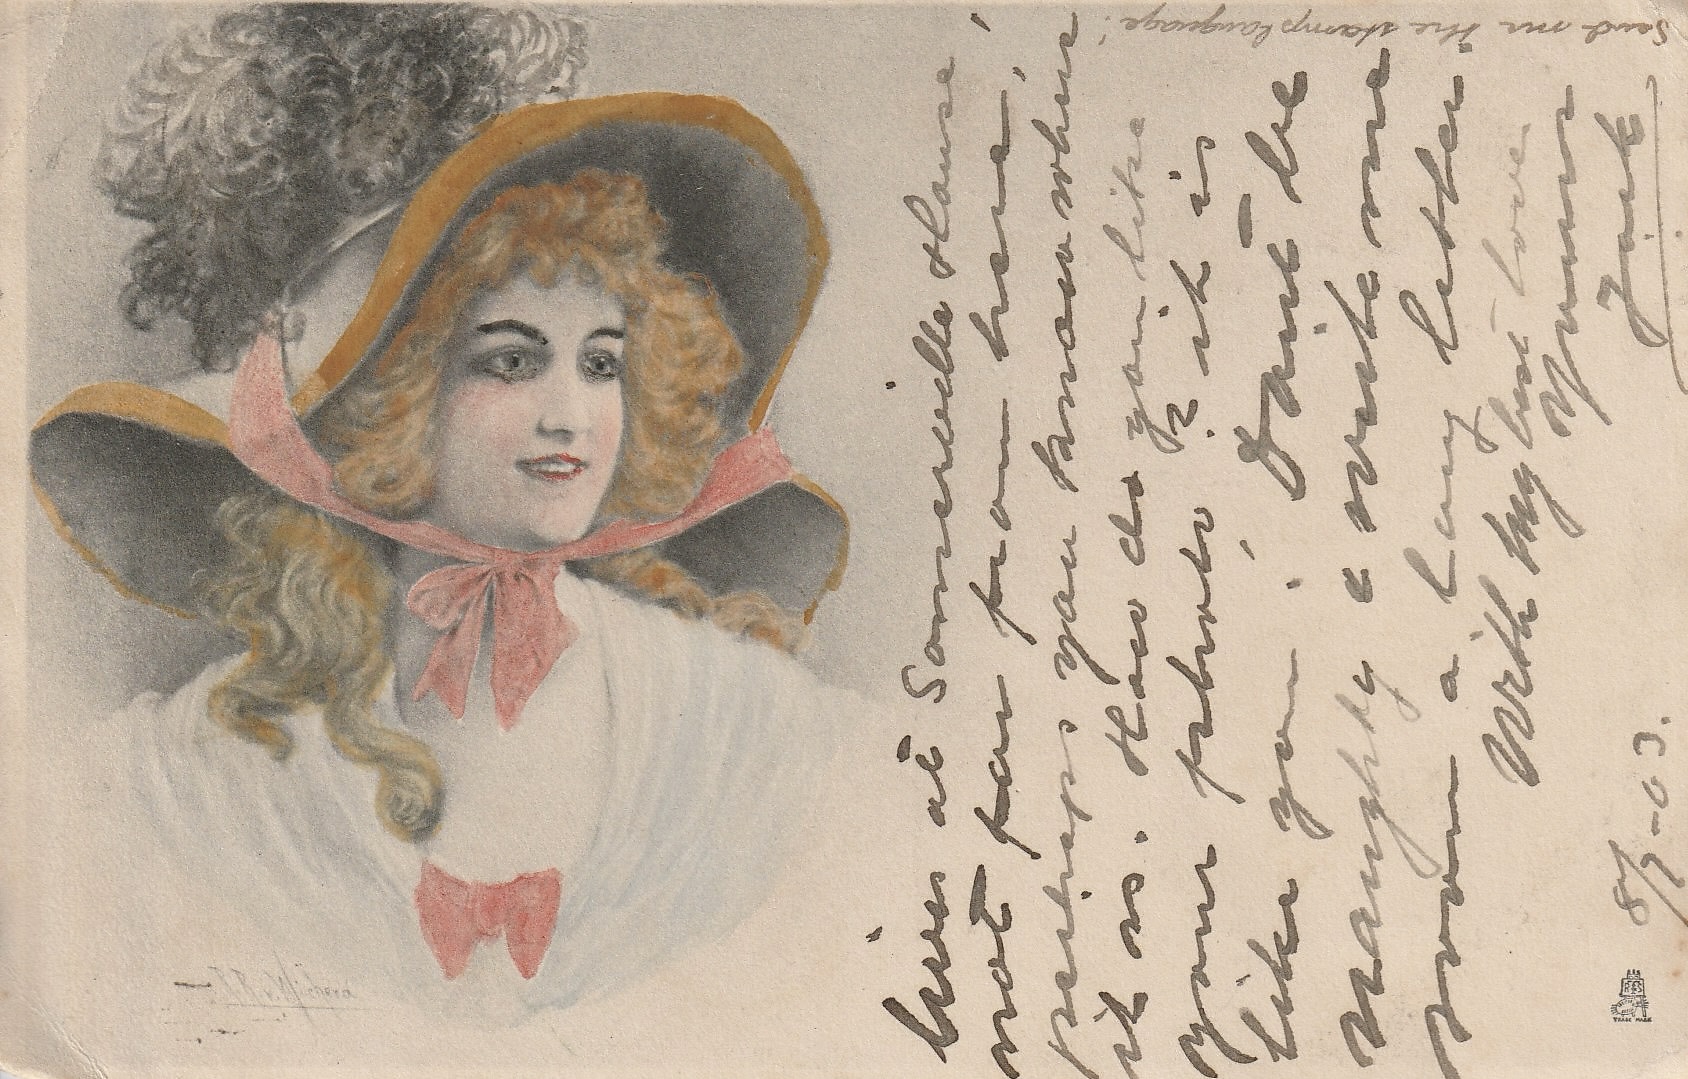 lives at Somerville House
not far from here,
perhaps you know where
it is. How do you like
your photo? it is
like you. Don't be
naughty & write me
soon a long letter.
With my best love
Yours
Jack
8/9-03.
Send me the stamp language!
TRADE MARK